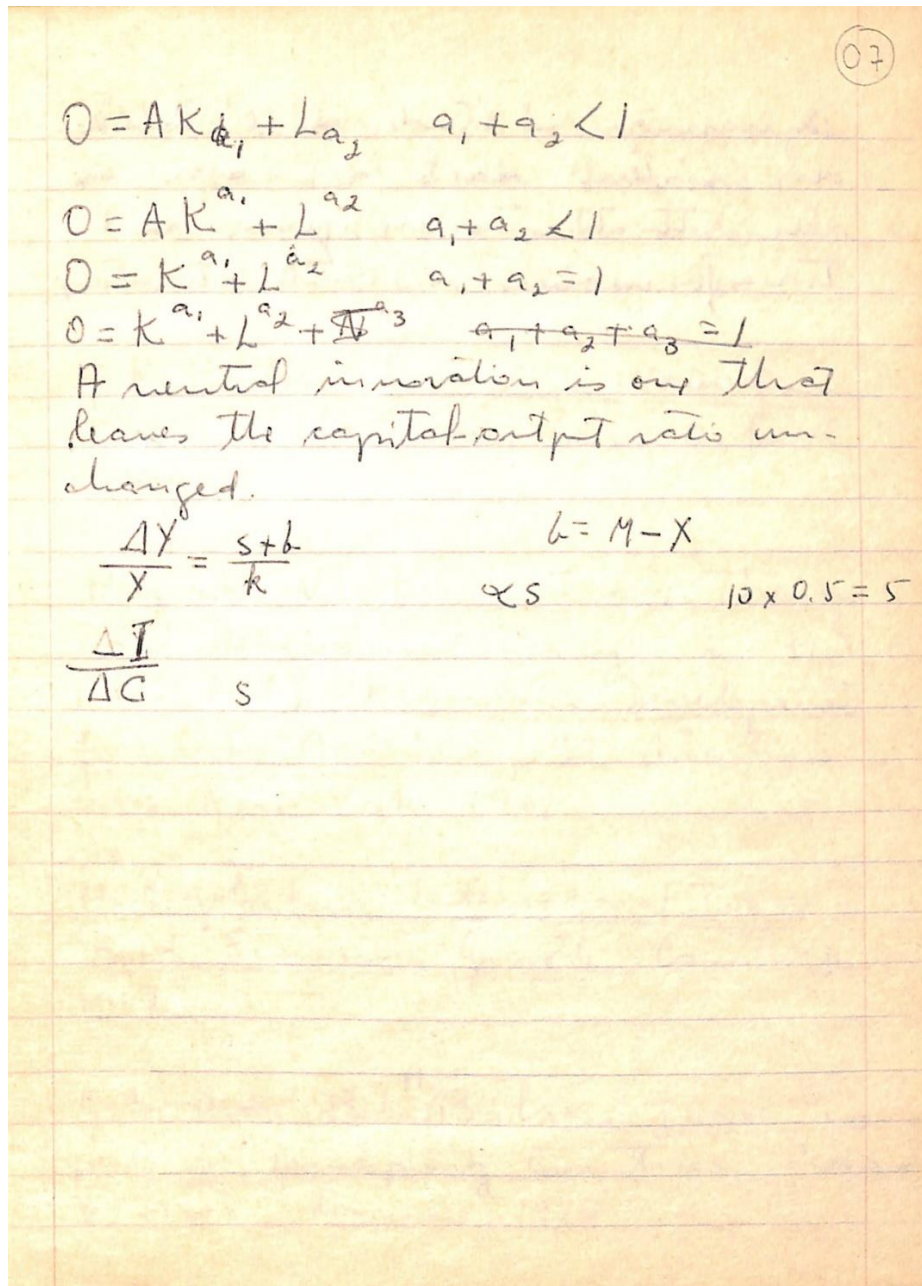 07
O = A K a₁ + L a₂    a₁ + a₂ < 1
O = A K^a₁ + L^a₂    a₁ + a₂ < 1
O = K^a₁ + L^a₂    a₁ + a₂ = 1
O = K^a₁ + L^a₂ + N^a₃    a₁ + a₂ + a₃ = 1
A neutral innovation is one that
leaves the capital-output ratio un-
changed.
ΔY/Y = (s+b)/k    b = M - X
αs    10 x 0.5 = 5
ΔI/ΔC    s